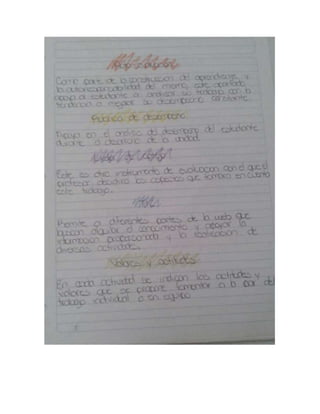 Como parte de la construcción del aprendizaje y
la autoresponsabilidad del mismo, este apartado
apoya al estudiante a analizar su trabajo con la
tendencia a mejorar su desempeño constante.
Rubrica de desempeño
Apoya en el análisis del desempeño del estudiante
durante el desarrollo de la unidad.
Este es otro instrumento de evaluación con el que el
profesor describirá los aspectos que tomará en cuenta
este trabajo.
Remite a diferentes partes de la web que
buscan adquirir el conocimiento y apoyar la
información proporcionada y la realización de
diversas actividades.
Valores y actitudes
En cada actividad se indican las actitudes y
valores que se propone fomentar a la par del
trabajo individual o en equipo